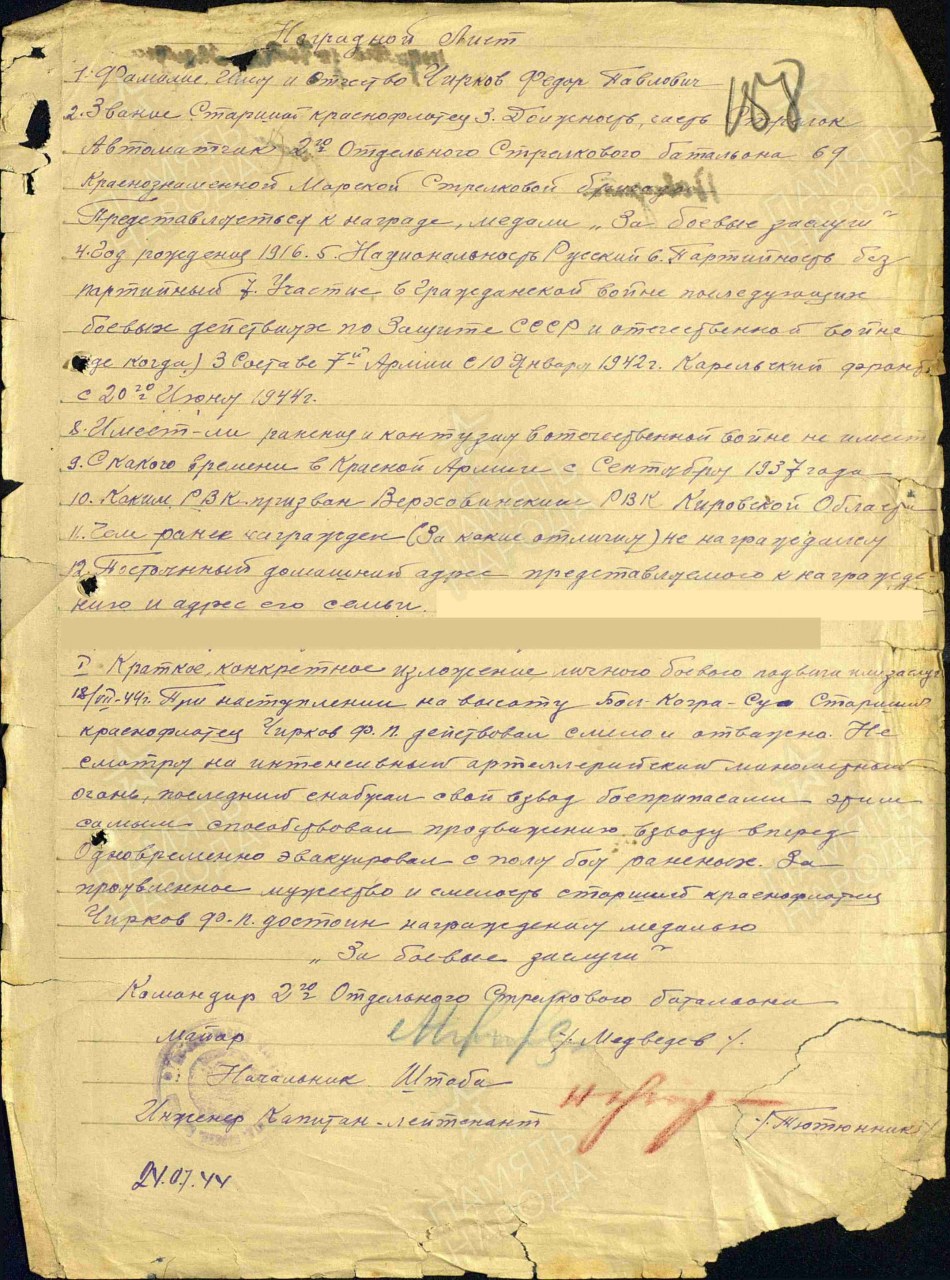 Наградной Лист
158
1. Фамилие Имя и Отчество Чирков Федор Павлович
2. Звание Старший краснофлотец 3. Должность, часть Стрелок
Автоматчик 2го Отдельного Стрелкового батальона 69
Краснознаменной Морской Стрелковой бригады
Представляеться к награде, медали „За боевые заслуги"
4. Год рождения 1916. 5. Национальность Русский 6. Партийность без
партийный 7. Участие в Гражданской войне последующих
боевых действиях по Защите СССР и отечественной войне
где когда) В Составе 7й Армии с 10 Января 1942г. Карельский фронт
с 20го Июня 1944г.
8. Имеет-ли ранения и контузия в отечественной войне не имеет
9. С какого времени в Красной Армии с Сентября 1937 года
10. Каким РВК призван Верховинским РВК Кировской Области
11. Чем ранее награжден (За какие отличия) не награждался
12. Постоянный домашний адрес представляемого к награжде-
нию и адрес его семьи.
I Краткое, конкретное изложение личного боевого подвига или заслуг
18/VII-44г. При наступлении на высоту Бол-Когра-Суо Старший
краснофлотец Чирков Ф.П. действовал смело и отважно. Не
смотря на интенсивный артеллерийский минометный
огонь, последний снабжал свой взвод боеприпасами этим
самым способствовал продвижению взводу вперед
Одновременно эвакуировал с полу боя раненых. За
проявленное мужество и смелость старший краснофлотец
Чирков Ф.П. достоин награждения медалью
„За боевые заслуги"
Командир 2го Отдельного Стрелкового батальона
Майор /Медведев/.
Начальник Штаба
Инженер Капитан-лейтенант /Тютюнник/
24.07.44
ПАМЯТЬ
НАРОДА